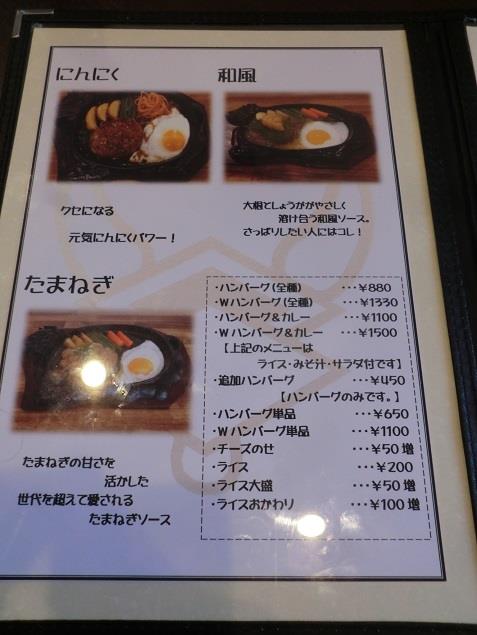 にんにく
和風
クセになる
元気にんにくパワー！
大根でしょうががやさしく
溶け合う和風ソース。
さっぱりしたい人にはコレ！
たまねぎ
たまねぎの甘さを
活かした
世代を超えて愛される
たまねぎソース
・ハンバーグ(全種) ・・・￥880
・Wハンバーグ(全種) ・・・￥1330
・ハンバーグ＆カレー ・・・￥1100
・Wハンバーグ＆カレー ・・・￥1500
【上記のメニューは
ライス・みそ汁・サラダ付です】
・追加ハンバーグ ・・・￥450
【ハンバーグのみです。】
・ハンバーグ単品 ・・・￥650
・Wハンバーグ単品 ・・・￥1100
・チーズのせ ・・・￥50増
・ライス ・・・￥200
・ライス大盛 ・・・￥50増
・ライスおかわり ・・・￥100増